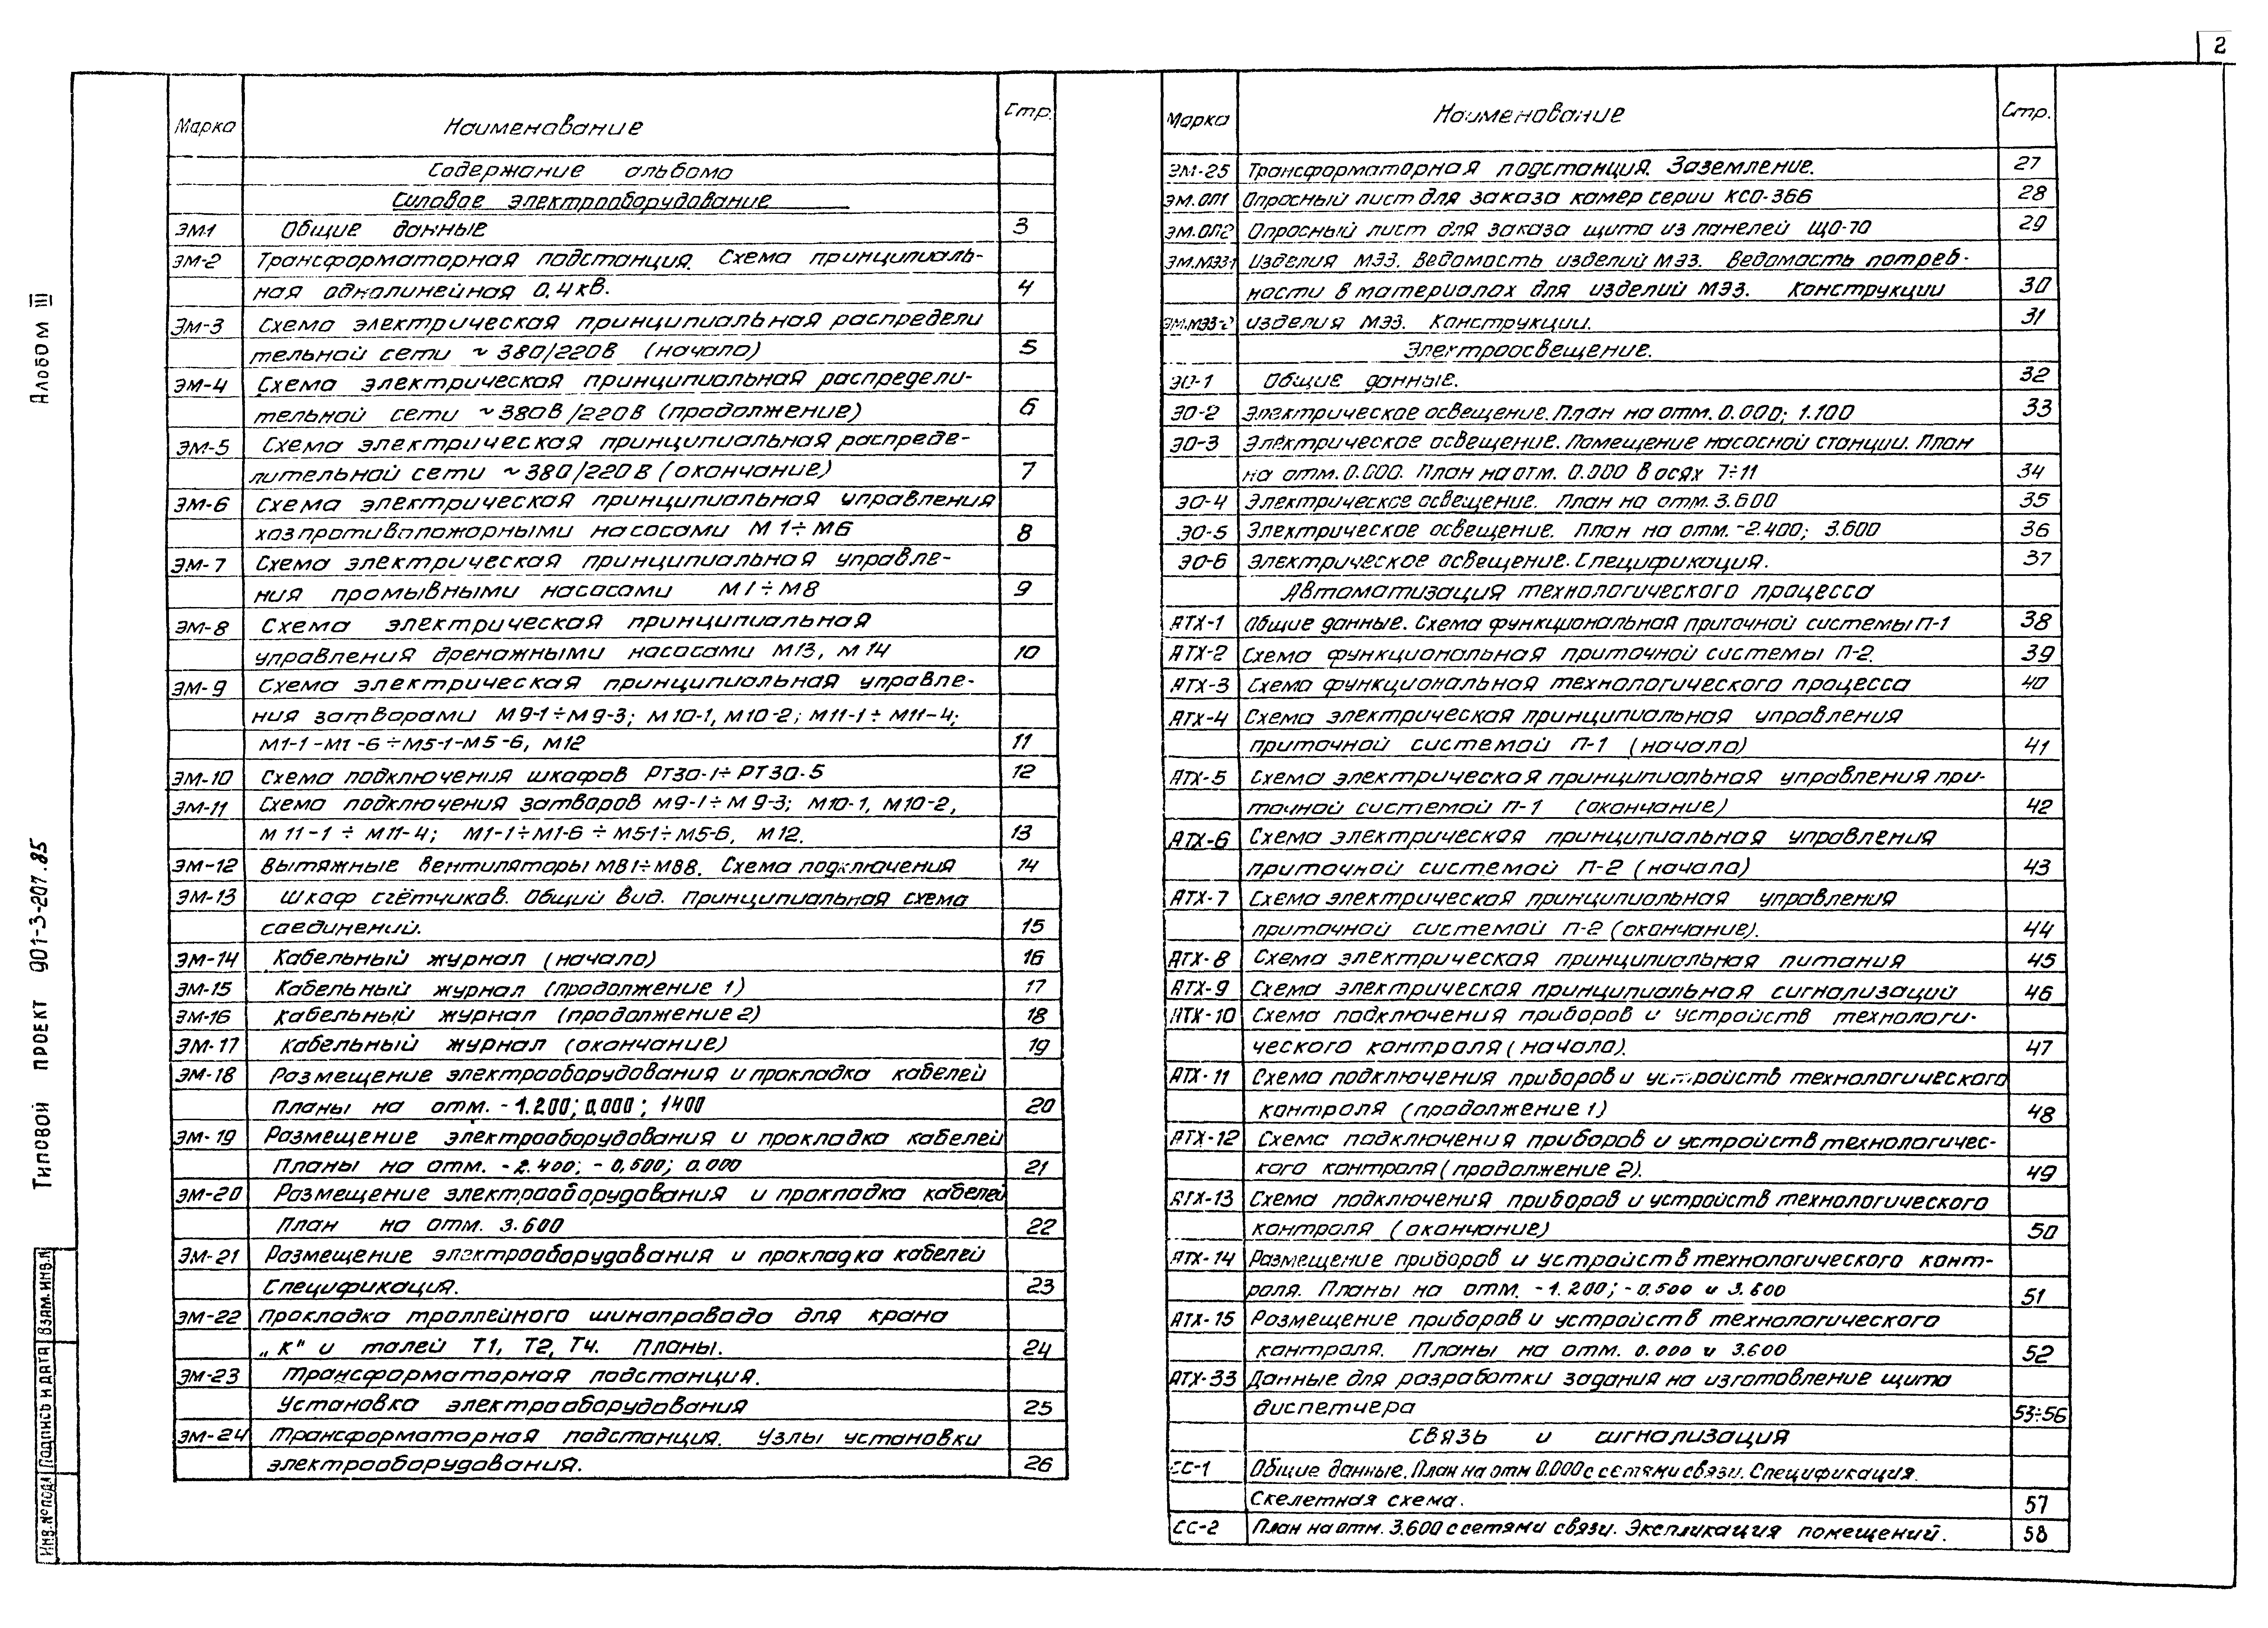 2
Альбом III
Типовой проект 901-3-207.85
Инв.№подл Подпись и дата Взам.инв.№
Марка Наименование Стр.
Содержание альбома
Силовое электрооборудование
ЭМ1 Общие данные 3
ЭМ-2 Трансформаторная подстанция. Схема принципиаль-
ная однолинейная 0,4кв. 4
ЭМ-3 Схема электрическая принципиальная распредели
тельной сети ~ 380/220В (начало) 5
ЭМ-4 Схема электрическая принципиальная распредели-
тельной сети ~380В/220В (продолжение) 6
ЭМ-5 Схема электрическая принципиальная распреде-
лительной сети ~380/220В (окончание) 7
ЭМ-6 Схема электрическая принципиальная управления
хозпротивопожарными насосами М1÷М6 8
ЭМ-7 Схема электрическая принципиальная управле-
ния промывными насосами М1÷М8 9
ЭМ-8 Схема электрическая принципиальная
управления дренажными насосами М13, М14 10
ЭМ-9 Схема электрическая принципиальная управле-
ния затворами М9-1÷М9-3; М10-1, М10-2; М11-1÷М11-4;
М1-1-М1-6÷М5-1-М5-6, М12 11
ЭМ-10 Схема подключения шкафов РТ30-1÷РТ30-5 12
ЭМ-11 Схема подключения затворов М9-1÷М9-3; М10-1, М10-2,
М11-1 ÷ М11-4; М1-1÷М1-6 ÷ М5-1÷М5-6, М12. 13
ЭМ-12 Вытяжные вентиляторы МВ1÷МВ8. Схема подключения 14
ЭМ-13 Шкаф счётчиков. Общий вид. Принципиальная схема
соединений. 15
ЭМ-14 Кабельный журнал (начало) 16
ЭМ-15 Кабельный журнал (продолжение 1) 17
ЭМ-16 Кабельный журнал (продолжение 2) 18
ЭМ-17 Кабельный журнал (окончание) 19
ЭМ-18 Размещение электрооборудования и прокладка кабелей
Планы на отм. -1.200; 0,000; 1400 20
ЭМ-19 Размещение электрооборудования и прокладка кабелей
Планы на отм. -2.400; -0,500; 0.000 21
ЭМ-20 Размещение электрооборудования и прокладка кабелей
План на отм. 3.600 22
ЭМ-21 Размещение электрооборудования и прокладка кабелей
Спецификация. 23
ЭМ-22 Прокладка троллейного шинопровода для крана
„К" и талей Т1, Т2, Т4. Планы. 24
ЭМ-23 Трансформаторная подстанция.
Установка электрооборудования 25
ЭМ-24 Трансформаторная подстанция. Узлы установки
электрооборудования. 26
Марка Наименование Стр.
ЭМ-25 Трансформаторная подстанция. Заземление. 27
ЭМ.ОЛ1 Опросный лист для заказа камер серии КСО-366 28
ЭМ.ОЛ2 Опросный лист для заказа щита из панелей ЩО-70 29
ЭМ.МЭЗ-1 Изделия МЭЗ. Ведомость изделий МЭЗ. Ведомасть потреб-
ности в материалах для изделий МЭЗ. Конструкции 30
ЭМ.МЭЗ-2 изделия МЭЗ. Конструкции. 31
Электроосвещение.
ЭО-1 Общие данные. 32
ЭО-2 Электрическое освещение. План на отм. 0.000; 1.100 33
ЭО-3 Электрическое освещение. Помещение насосной станции. План
на отм. 0.000. План на отм. 0.000 в осях 7÷11 34
ЭО-4 Электрическое освещение. План на отм. 3.600 35
ЭО-5 Электрическое освещение. План на отм. -2.400; 3.600 36
ЭО-6 Электрическое освещение. Спецификация. 37
Автоматизация технологического процесса
АТХ-1 Общие данные. Схема функциональная приточной системы П-1 38
АТХ-2 Схема функциональная приточной системы П-2. 39
АТХ-3 Схема функциональная технологического процесса 40
АТХ-4 Схема электрическая принципиальная управления
приточной системой П-1 (начало) 41
АТХ-5 Схема электрическая принципиальная управления при-
точной системой П-1 (окончание) 42
АТХ-6 Схема электрическая принципиальная управления
приточной системой П-2 (начало) 43
АТХ-7 Схема электрическая принципиальная управления
приточной системой П-2 (окончание). 44
АТХ-8 Схема электрическая принципиальная питания 45
АТХ-9 Схема электрическая принципиальная сигнализаций 46
АТХ-10 Схема подключения приборов и устройств технологи-
ческого контроля (начало). 47
АТХ-11 Схема подключения приборов и устройств технологического
контроля (продолжение 1) 48
АТХ-12 Схема подключения приборов и устройств технологичес-
кого контроля (продолжение 2). 49
АТХ-13 Схема подключения приборов и устройств технологического
контроля (окончание) 50
АТХ-14 Размещение приборов и устройств технологического конт-
роля. Планы на отм. -1.200; -0.500 и 3.600 51
АТХ-15 Размещение приборов и устройств технологического
контроля. Планы на отм. 0.000 и 3.600 52
АТХ-33 Данные для разработки задания на изготовление щита
диспетчера 53÷56
Связь и сигнализация
СС-1 Общие данные. План на отм 0.000 с сетями связи. Спецификация.
Скелетная схема. 57
СС-2 План на отм. 3.600 с сетями связи. Экспликация помещений. 58